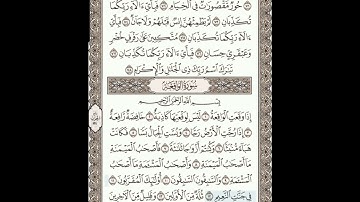 حُورٌ مَّقْصُورَٰتٌ فِى ٱلْخِيَامِ ۝ فَبِأَىِّ ءَالَآءِ رَبِّكُمَا
تُكَذِّبَانِ ۝ لَمْ يَطْمِثْهُنَّ إِنسٌ قَبْلَهُمْ وَلَا جَآنٌّ ۝ فَبِأَىِّ
ءَالَآءِ رَبِّكُمَا تُكَذِّبَانِ ۝ مُتَّكِـِٔينَ عَلَىٰ رَفْرَفٍ خُضْرٍ
وَعَبْقَرِىٍّ حِسَانٍ ۝ فَبِأَىِّ ءَالَآءِ رَبِّكُمَا تُكَذِّبَانِ ۝
تَبَٰرَكَ ٱسْمُ رَبِّكَ ذِى ٱلْجَلَٰلِ وَٱلْإِكْرَامِ ۝
سُورَةُ الوَاقِعَةِ
بِسْمِ ٱللَّهِ ٱلرَّحْمَٰنِ ٱلرَّحِيمِ
إِذَا وَقَعَتِ ٱلْوَاقِعَةُ ۝ لَيْسَ لِوَقْعَتِهَا كَاذِبَةٌ ۝ خَافِضَةٌ رَّافِعَةٌ
۝ إِذَا رُجَّتِ ٱلْأَرْضُ رَجًّا ۝ وَبُسَّتِ ٱلْجِبَالُ بَسًّا ۝ فَكَانَتْ
هَبَآءً مُّنۢبَثًّا ۝ وَكُنتُمْ أَزْوَٰجًا ثَلَٰثَةً ۝ فَأَصْحَٰبُ ٱلْمَيْمَنَةِ
مَآ أَصْحَٰبُ ٱلْمَيْمَنَةِ ۝ وَأَصْحَٰبُ ٱلْمَشْـَٔمَةِ مَآ أَصْحَٰبُ
ٱلْمَشْـَٔمَةِ ۝ وَٱلسَّٰبِقُونَ ٱلسَّٰبِقُونَ ۝ أُو۟لَٰٓئِكَ ٱلْمُقَرَّبُونَ ۝
فِى جَنَّٰتِ ٱلنَّعِيمِ ۝ ثُلَّةٌ مِّنَ ٱلْأَوَّلِينَ ۝ وَقَلِيلٌ مِّنَ ٱلْـَٔاخِرِينَ